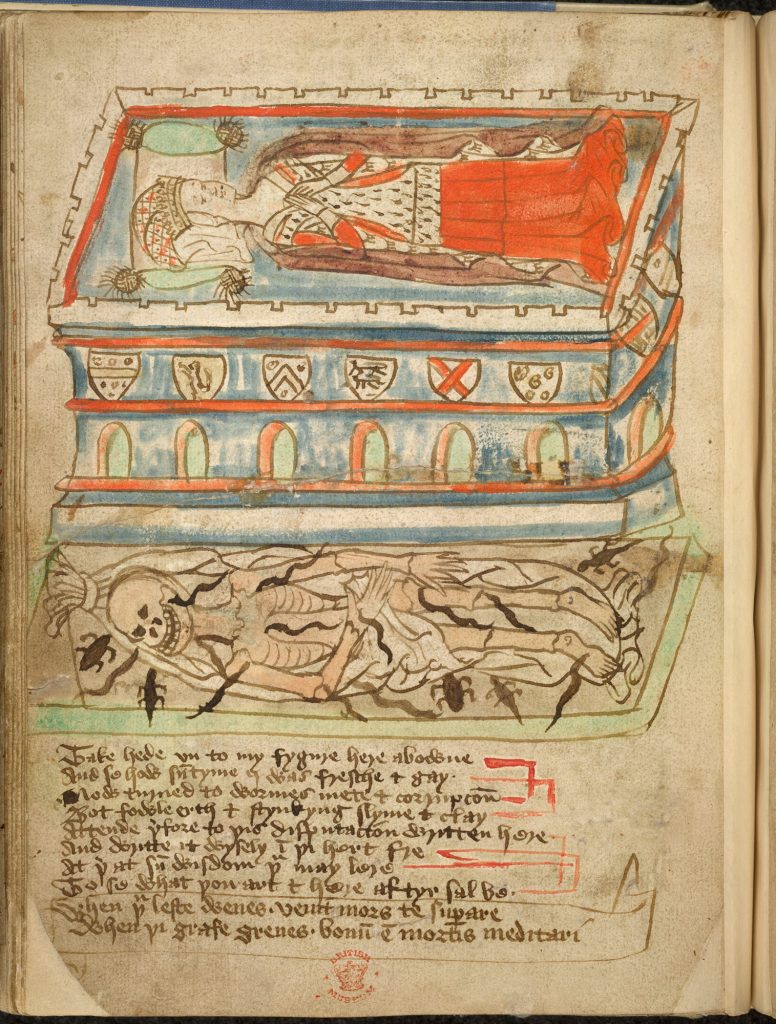 Take hede vn to my fygure here abowne
And se how sūtyme I was fresche & gay
Now turned to wormes mete & corrupcōn
Bot fowle erth & stynkyng slyme & clay
Attende þfore to þis disputacion written here
And writte it wysely ī þi hert fre
At þ at sū wisdom þu may lere
To se what þou art & here aftyr sal be
When þu leste wenes · venit mors te supare
When þi grafe grenes · bonū ē mortis meditari
BRITISH
MUSEUM